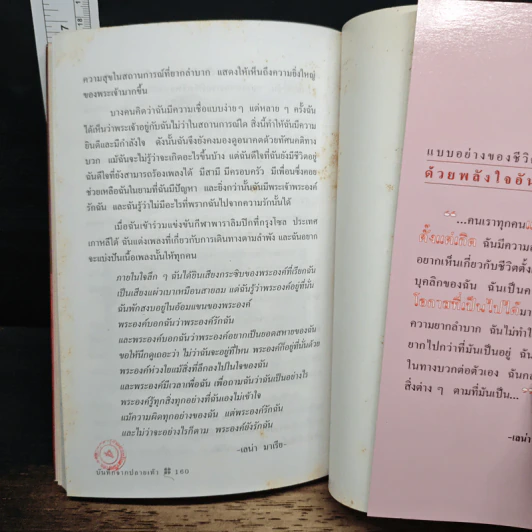 ความสุขในสถานการณ์ที่ยากลำบาก แสดงให้เห็นถึงความยิ่งใหญ่
ของพระเจ้ามากขึ้น
บางคนคิดว่าฉันมีความเชื่อแบบง่ายๆ แต่หลาย ๆ ครั้งฉัน
ได้เห็นว่าพระเจ้าอยู่กับฉันไม่ว่าในสถานการณ์ใด สิ่งนี้ทำให้ฉันมีความ
ยินดีและมีกำลังใจ ดังนั้นฉันจึงยังคงมองดูอนาคตด้วยทัศนคติทาง
บวก แม้ฉันจะไม่รู้ว่าจะเกิดอะไรขึ้นบ้าง แต่ฉันดีใจที่ฉันยังมีชีวิตอยู่
ฉันดีใจที่ยังสามารถร้องเพลงได้ มีสามี มีครอบครัว มีเพื่อนซึ่งคอย
ช่วยเหลือฉันในยามที่ฉันมีปัญหา และยิ่งกว่านั้นฉันมีพระเจ้าพระองค์
รักฉัน และฉันรู้ว่าไม่มีอะไรที่พรากฉันไปจากความรักนั้นได้
เมื่อฉันเข้าร่วมแข่งขันกีฬาพาราลิมปิกที่กรุงโซล ประเทศ
เกาหลีใต้ ฉันแต่งเพลงที่เกี่ยวกับการเดินทางตามลำพัง และฉันอยาก
จะแบ่งปันเนื้อเพลงนั้นให้ทุกคน
ภายในใจลึก ๆ ฉันได้ยินเสียงกระซิบของพระองค์ที่เรียกฉัน
เป็นเสียงแผ่วเบาเหมือนสายลม แต่ฉันรู้ว่าพระองค์อยู่ที่นั่น
ฉันพักสงบอยู่ในอ้อมแขนของพระองค์
พระองค์บอกฉันว่าพระองค์รักฉัน
และพระองค์บอกฉันว่าพระองค์อยากเป็นยอดสหายของฉัน
ขอให้นึกดูเถอะว่า ไม่ว่าฉันจะอยู่ที่ไหน พระองค์ก็อยู่ที่นั่นด้วย
พระองค์ห่วงใยแม้สิ่งที่ลึกลงไปในใจของฉัน
และพระองค์มีเวลาเพื่อฉัน เพื่อถามฉันว่าฉันเป็นอย่างไร
พระองค์รู้ทุกสิ่งทุกอย่างที่ฉันเองไม่เข้าใจ
แม้ความผิดทุกอย่างของฉัน แต่พระองค์รักฉัน
และไม่ว่าจะอย่างไรก็ตาม พระองค์ยังรักฉัน
-เลน่า มาเรีย-
บันทึกจากปลายเท้า 180
แบบอย่างของชีวิต
ด้วยพลังใจอัน
“...คนเราทุกคน
ตั้งแต่เกิด ฉันมีความ
อยากเห็นเกี่ยวกับชีวิตตั้ง
บุคลิกของฉัน ฉันเป็นค
โอกาสที่เป็นไปได้มา
ความยากลำบาก ฉันไม่ทำใ
ยากไปกว่าที่มันเป็นอยู่ ฉั
ในทางบวกต่อตัวเอง ฉันก
สิ่งต่าง ๆ ตามที่มันเป็น...”
-เลน่า